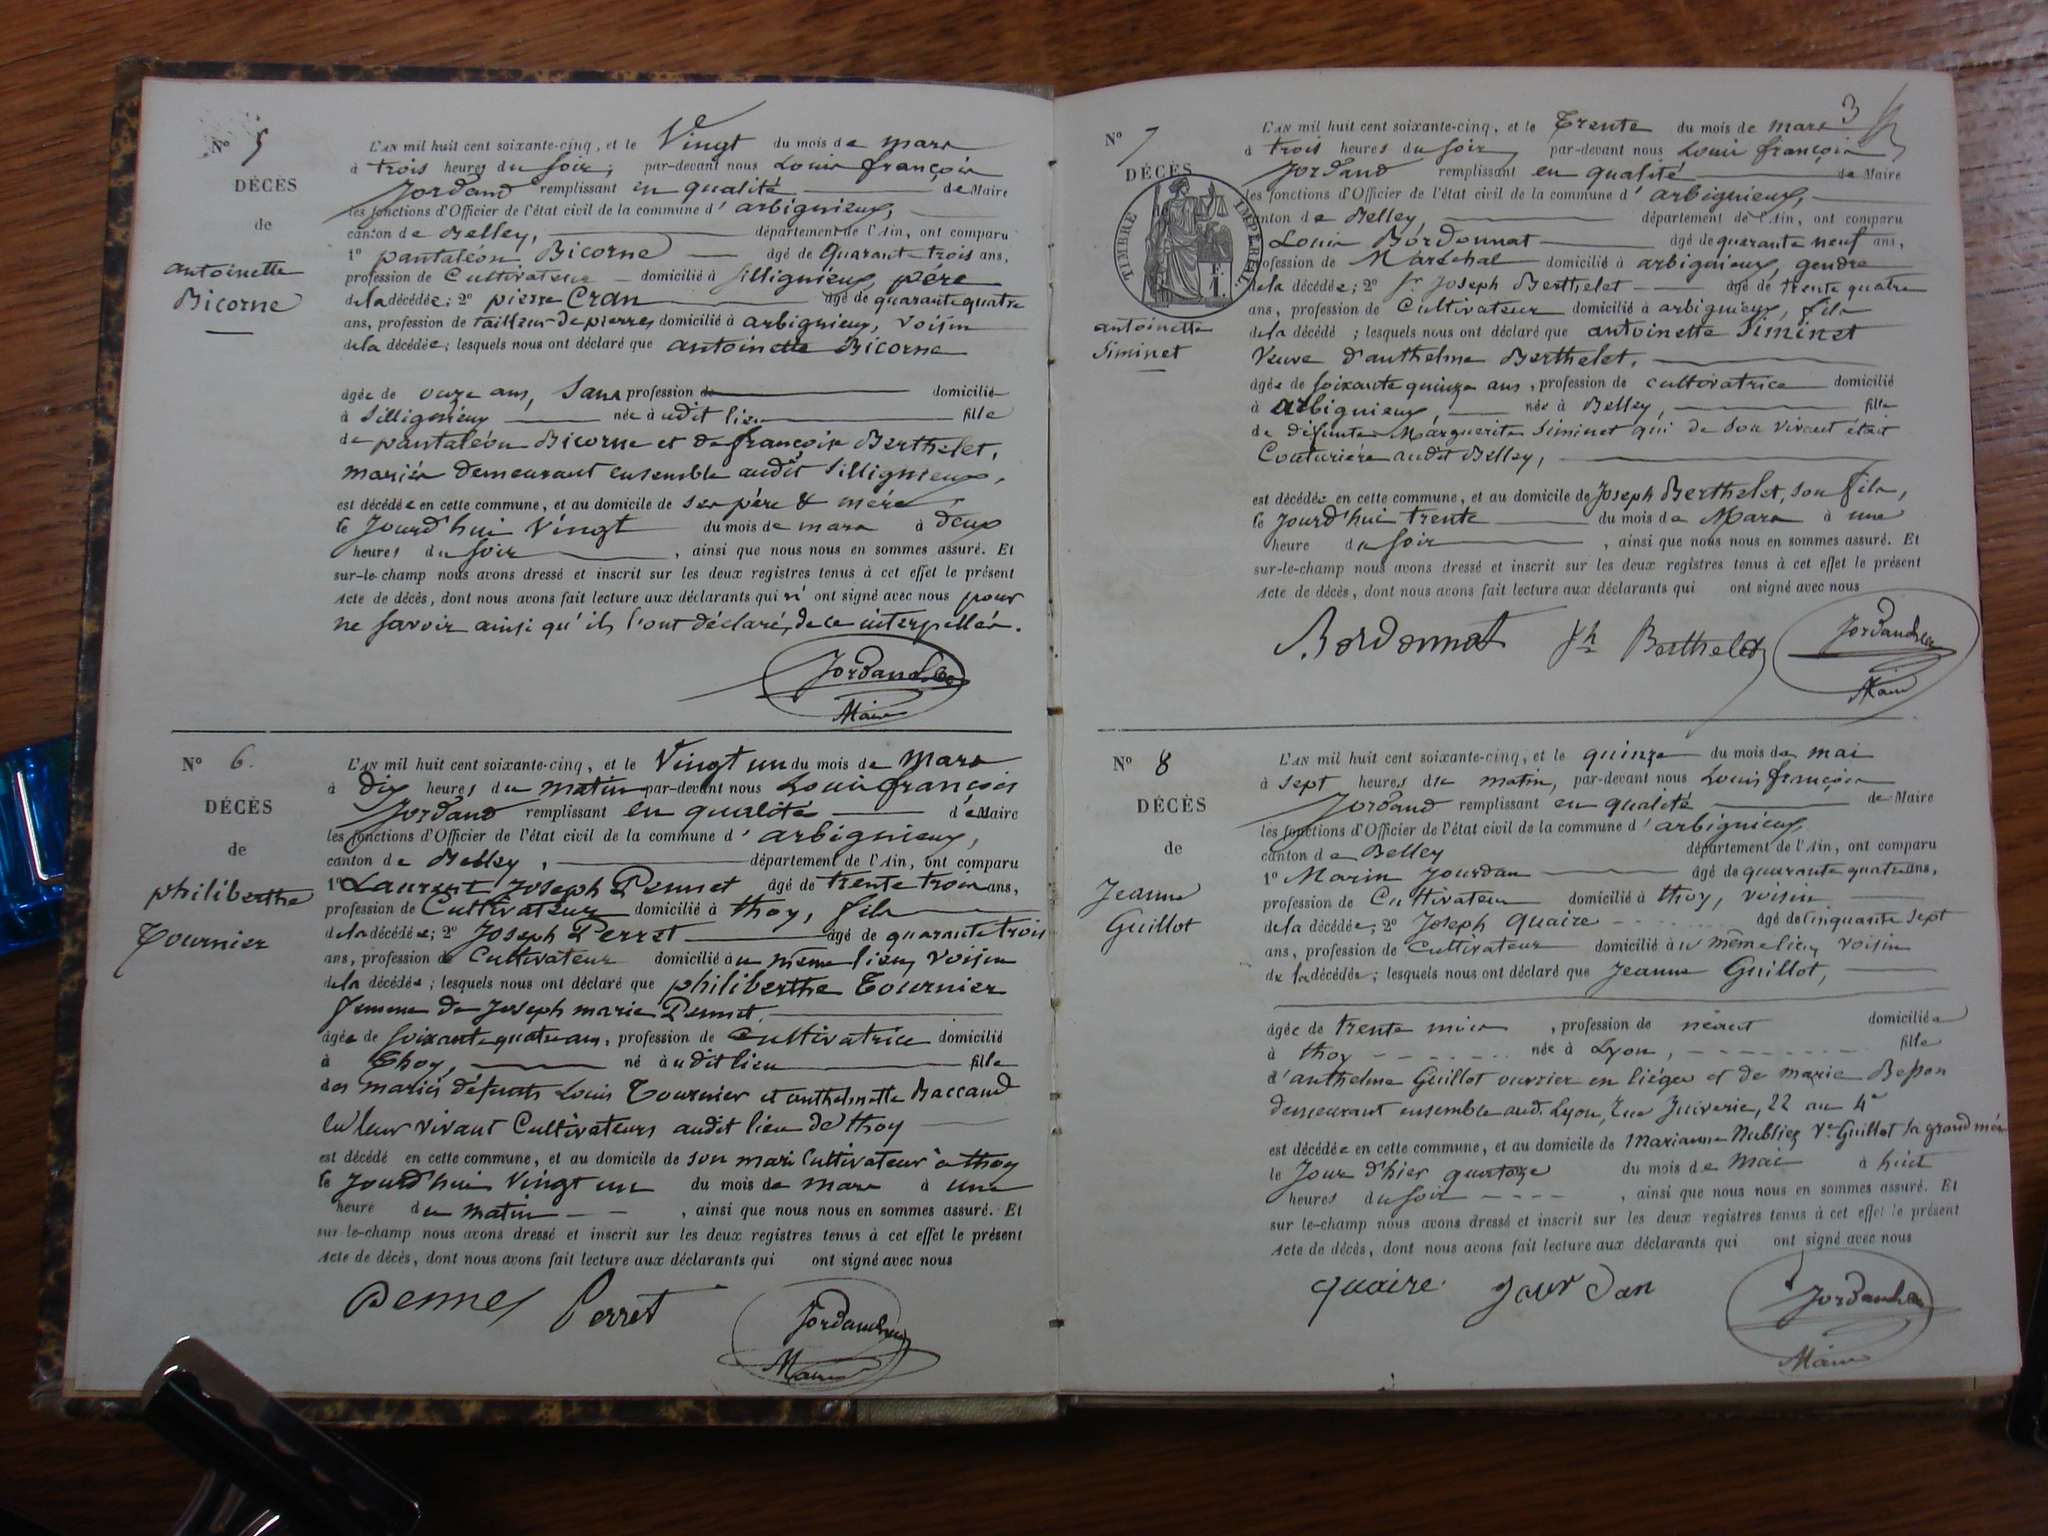 N° 5
DÉCÈS
de
antoinette
Bicorne
L'AN mil huit cent soixante-cinq, et le Vingt du mois de mars
à trois heures du soir, par-devant nous Louis françois
Jordand remplissant en qualité de Maire
les fonctions d'Officier de l'état civil de la commune d'arbignieux,
canton de Belley, département de l'Ain, ont comparu
1° pantaléon Bicorne âgé de quarante trois ans,
profession de Cultivateur domicilié à Sillignieux, père
de la décédée; 2° pierre Cran âgé de quarante quatre
ans, profession de tailleur de pierres domicilié à arbignieux, voisin
de la décédée; lesquels nous ont déclaré que antoinette Bicorne
âgée de onze ans, sans profession de domicilié
à Sillignieux née à udit lieu fille
de pantaléon Bicorne et de françoise Berthelet,
mariés demeurant ensemble audit Sillignieux,
est décédée en cette commune, et au domicile de ses père & mère
le jourd'hui vingt du mois de mars à deux
heures du soir, ainsi que nous nous en sommes assuré. Et
sur-le-champ nous avons dressé et inscrit sur les deux registres tenus à cet effet le présent
Acte de décès, dont nous avons fait lecture aux déclarants qui n'ont signé avec nous pour
ne savoir ainsi qu'ils l'ont déclaré, de ce interpellés.
Maire
N° 6.
DÉCÈS
de
philiberthe
Tournier
L'AN mil huit cent soixante-cinq, et le Vingt un du mois de Mars
à dix heures du matin par-devant nous Louis françois
Jordand remplissant en qualité de Maire
les fonctions d'Officier de l'état civil de la commune d'arbignieux,
canton de Belley, département de l'Ain, ont comparu
1° Laurent Joseph Pennet âgé de trente trois ans,
profession de Cultivateur domicilié à thoy, fils
de la décédée; 2° Joseph Perret âgé de quarante trois
ans, profession de Cultivateur domicilié au même lieu, voisin
de la décédée; lesquels nous ont déclaré que philiberthe Tournier
femme de Joseph marie Pennet,
âgée de soixante quatre ans, profession de Cultivatrice domicilié
à Thoy, né à udit lieu fille
des mariés défunts Louis Tournier et anthelmette Baccand
en leur vivant Cultivateurs audit lieu de thoy
est décédé en cette commune, et au domicile de son mari Cultivateur à thoy
le jourd'hui vingt un du mois de mars à une
heure du matin, ainsi que nous nous en sommes assuré. Et
sur-le-champ nous avons dressé et inscrit sur les deux registres tenus à cet effet le présent
Acte de décès, dont nous avons fait lecture aux déclarants qui ont signé avec nous
Pennet Perret
Maire
3
N° 7
DÉCÈS
TIMBRE IMPÉRIAL
antoinette
Siminet
L'AN mil huit cent soixante-cinq, et le Trente du mois de mars
à trois heures du soir, par-devant nous Louis françois
Jordand remplissant en qualité de Maire
les fonctions d'Officier de l'état civil de la commune d'arbignieux,
canton de Belley, département de l'Ain, ont comparu
Louis Bordonnat âgé de quarante neuf ans,
profession de Maréchal domicilié à arbignieux, gendre
de la décédée; 2° Sr Joseph Berthelet âgé de trente quatre
ans, profession de Cultivateur domicilié à arbignieux, fils
de la décédé; lesquels nous ont déclaré que antoinette Siminet
Veuve d'anthelme Berthelet,
âgée de soixante quinze ans, profession de cultivatrice domicilié
à arbignieux, née à Belley, fille
de défunte Marguerite Siminet qui de son vivant était
Couturiere audit Belley,
est décédée en cette commune, et au domicile de Joseph Berthelet, son fils,
le jourd'hui trente du mois de Mars à une
heure du soir, ainsi que nous nous en sommes assuré. Et
sur-le-champ nous avons dressé et inscrit sur les deux registres tenus à cet effet le présent
Acte de décès, dont nous avons fait lecture aux déclarants qui ont signé avec nous
Bordonnat Jh Berthelet
Maire
N° 8
DÉCÈS
de
Jeanne
Guillot
L'AN mil huit cent soixante-cinq, et le quinze du mois de mai
à sept heures du matin, par-devant nous Louis françois
Jordand remplissant en qualité de Maire
les fonctions d'Officier de l'état civil de la commune d'arbignieux
canton de Belley département de l'Ain, ont comparu
1° Marin Jourdan âgé de quarante quatre ans,
profession de Cultivateur domicilié à thoy, voisin
de la décédée; 2° Joseph Quaire âgé de cinquante sept
ans, profession de Cultivateur domicilié au même lieu, voisin
de la décédée; lesquels nous ont déclaré que Jeanne Guillot,
âgée de trente mois, profession de néant domiciliée
à thoy née à Lyon, fille
d'anthelme Guillot ouvrier en liéges et de marie Besson
demeurant ensemble aud. Lyon, rue Juiverie, 22 au 4e
est décédée en cette commune, et au domicile de Marianne Ve Guillot sa grand mère
le Jour d'hier quatorze du mois de Mai à huit
heures du soir, ainsi que nous nous en sommes assuré. Et
sur le-champ nous avons dressé et inscrit sur les deux registres tenus à cet effet le présent
Acte de décès, dont nous avons fait lecture aux déclarants qui ont signé avec nous
quaire jourdan
Maire